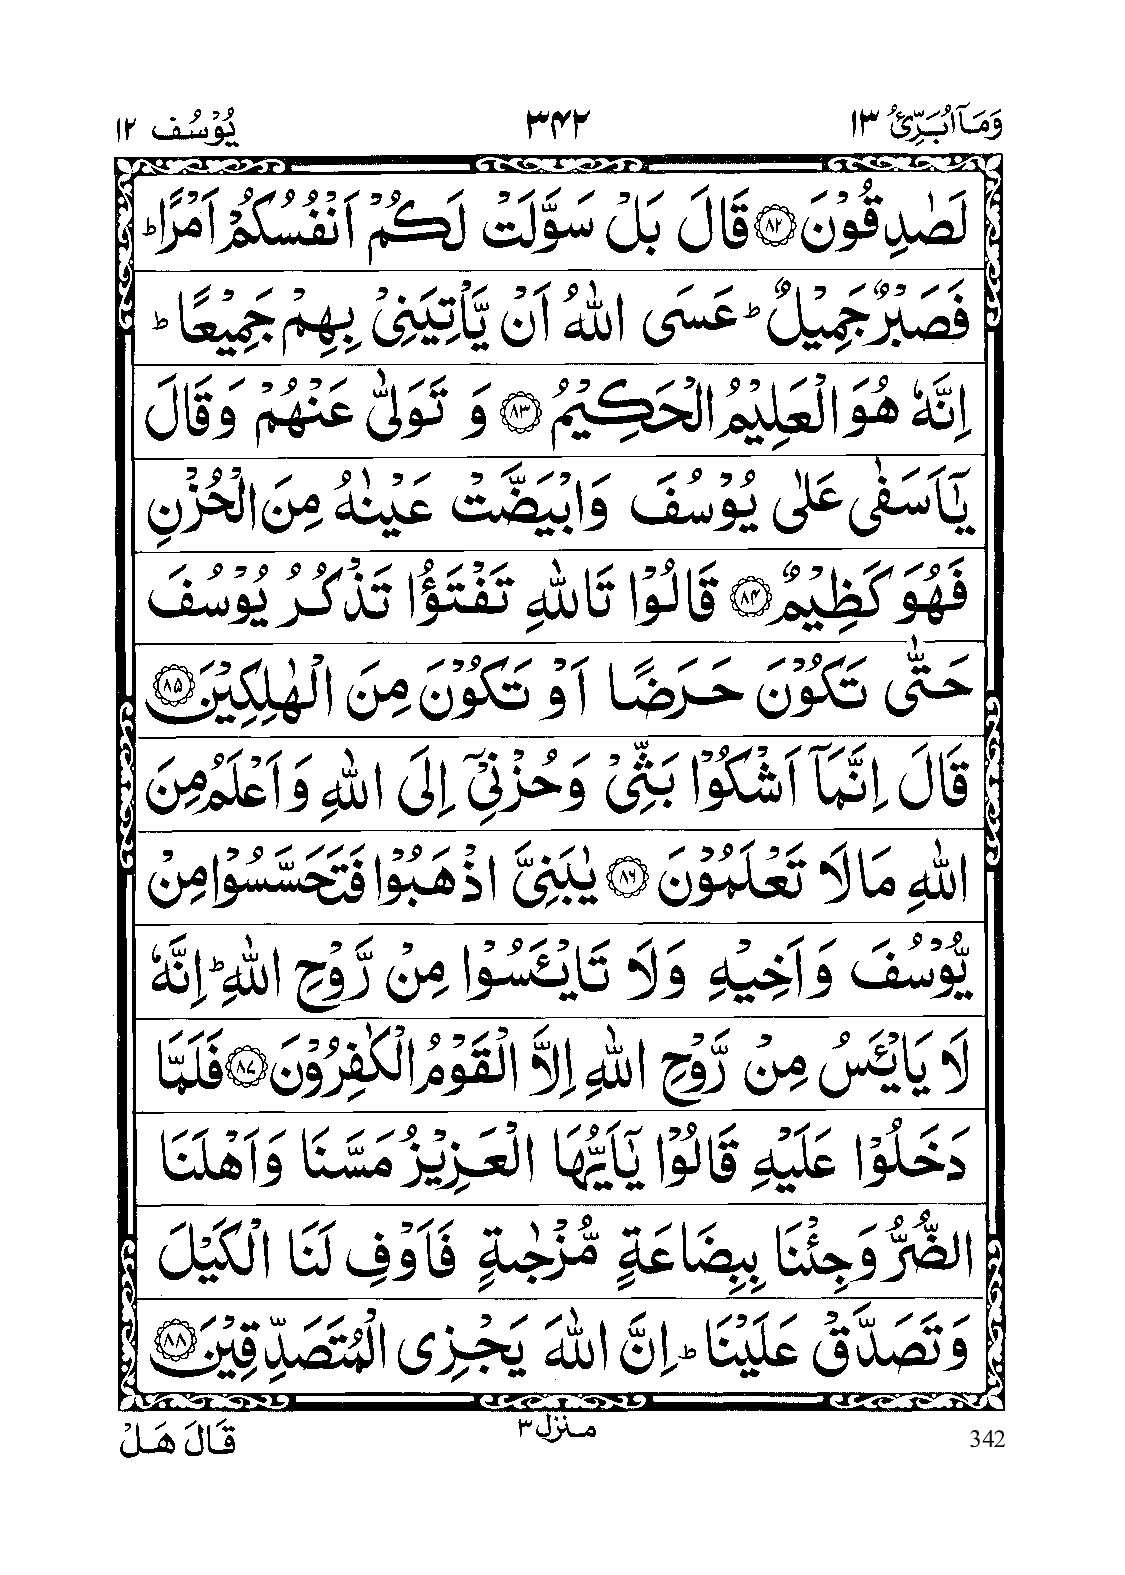 وَمَاۤ اُبَرِّئُ ۱۳ ۳۴۲ يُوْسُف ۱۲
لَصٰدِقُوْنَ ﴿۸۲﴾ قَالَ بَلْ سَوَّلَتْ لَكُمْ اَنْفُسُكُمْ اَمْرًا ؕ
فَصَبْرٌ جَمِيْلٌ ؕ عَسَى اللّٰهُ اَنْ يَّاْتِيَنِيْ بِهِمْ جَمِيْعًا ؕ
اِنَّهٗ هُوَ الْعَلِيْمُ الْحَكِيْمُ ﴿۸۳﴾ وَ تَوَلّٰى عَنْهُمْ وَقَالَ
يٰۤاَسَفٰى عَلٰى يُوْسُفَ وَابْيَضَّتْ عَيْنٰهُ مِنَ الْحُزْنِ
فَهُوَ كَظِيْمٌ ﴿۸۴﴾ قَالُوْا تَاللّٰهِ تَفْتَؤُا تَذْكُرُ يُوْسُفَ
حَتّٰى تَكُوْنَ حَرَضًا اَوْ تَكُوْنَ مِنَ الْهٰلِكِيْنَ ﴿۸۵﴾
قَالَ اِنَّمَاۤ اَشْكُوْا بَثِّيْ وَحُزْنِيْۤ اِلَى اللّٰهِ وَاَعْلَمُ مِنَ
اللّٰهِ مَا لَا تَعْلَمُوْنَ ﴿۸۶﴾ يٰبَنِيَّ اذْهَبُوْا فَتَحَسَّسُوْا مِنْ
يُّوْسُفَ وَاَخِيْهِ وَلَا تَايْـَٔسُوْا مِنْ رَّوْحِ اللّٰهِ ؕ اِنَّهٗ
لَا يَايْـَٔسُ مِنْ رَّوْحِ اللّٰهِ اِلَّا الْقَوْمُ الْكٰفِرُوْنَ ﴿۸۷﴾ فَلَمَّا
دَخَلُوْا عَلَيْهِ قَالُوْا يٰۤاَيُّهَا الْعَزِيْزُ مَسَّنَا وَاَهْلَنَا
الضُّرُّ وَجِئْنَا بِبِضَاعَةٍ مُّزْجٰىةٍ فَاَوْفِ لَنَا الْكَيْلَ
وَتَصَدَّقْ عَلَيْنَا ؕ اِنَّ اللّٰهَ يَجْزِى الْمُتَصَدِّقِيْنَ ﴿۸۸﴾
منزل ۳
قَالَ هَلْ
342